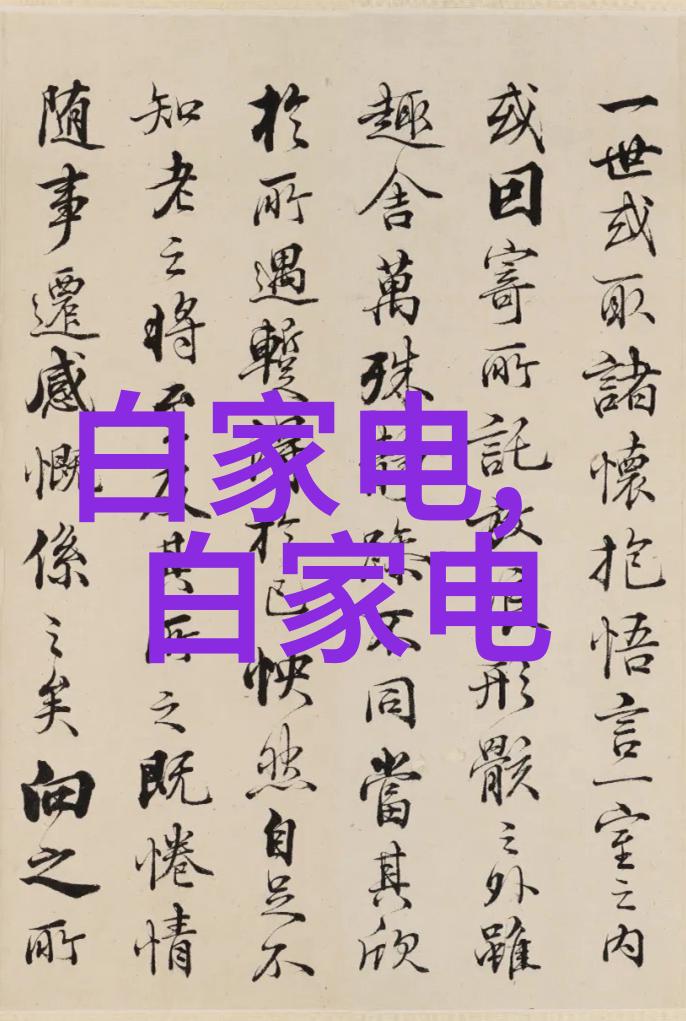 一世或取諸懷抱悟言一室之内
或因寄所託放浪形骸之外雖
趣舍萬殊靜躁不同當其欣
於所遇暫得於己怏然自足不
知老之將至及其所之既惓情
随事遷感慨係之矣向之所
白家电,
白家电